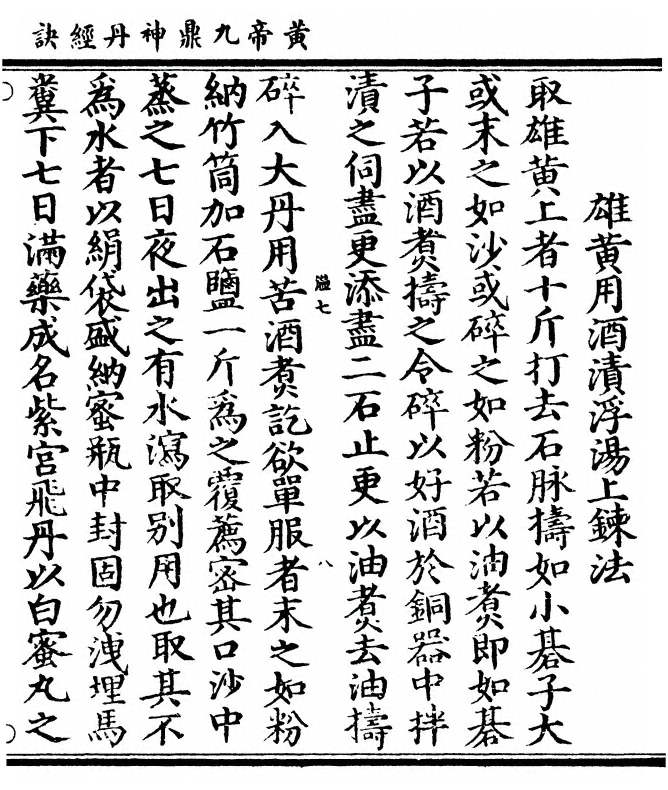 黃帝九鼎神丹經訣
雄黃用酒漬浮湯上鍊法
取雄黃上者十斤打去石脉擣如小碁子大
或末之如沙或碎之如粉若以油煑即如碁
子若以酒煑擣之令碎以好酒於銅器中拌
漬之伺盡更添盡二石止更以油煑去油擣
溢七
八
碎入大丹用苦酒煑訖欲單服者末之如粉
納竹筒加石鹽一斤爲之覆薦密其口沙中
蒸之七日夜出之有水瀉取別用也取其不
爲水者以絹袋盛納蜜瓶中封固勿洩埋馬
糞下七日滿藥成名紫宮飛丹以白蜜丸之